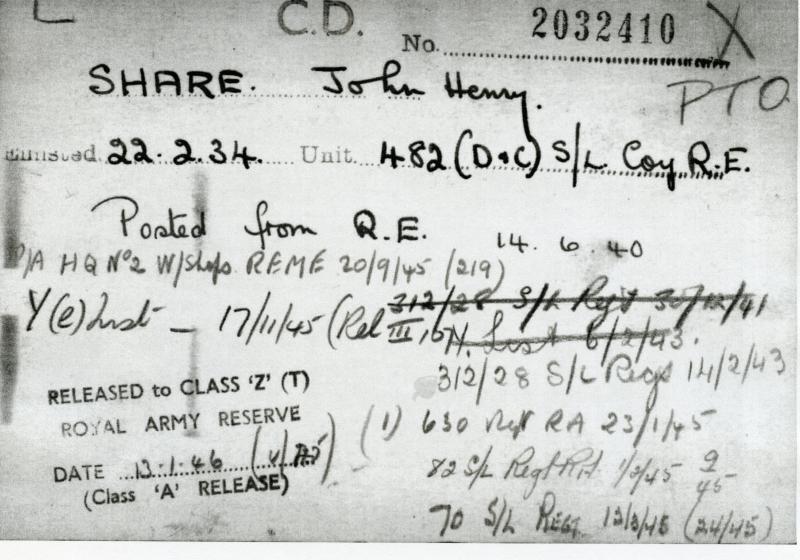 C.D.
No. 2032410 X
SHARE. John Henry.
PTO
Enlisted 22.2.34. Unit 482 (D&C) S/L. Coy R.E.
Posted from R.E. 14.6.40
P/A HQ No2 W/Shops. REME 20/9/45 (219)
312/28 S/L Regt 30/12/41
Y(e) List — 17/11/45 (Rel
List 6/2/43.
312/28 S/L Regt 14/2/43
RELEASED to CLASS 'Z' (T)
ROYAL ARMY RESERVE
DATE 13.1.46
(Class 'A' RELEASE)
(1) 630 Regt RA 23/1/45
82 S/L Regt RA 1/2/45 9/45
70 S/L REGT. (24/45)